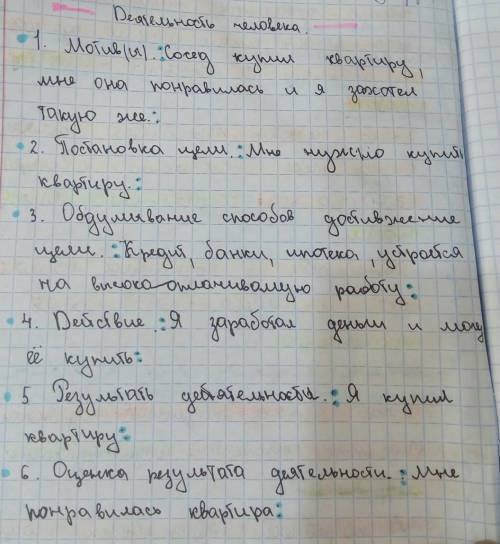 Деятельность человека.
1. Мотив(ы).: Сосед купил квартиру,
мне она понравилась и я захотел
такую же.:
2. Постановка цели.: Мне нужно купить
квартиру.:
3. Обдумывание способов достижение
цели.: Кредит, банки, ипотека, устроится
на высоко-оплачиваемую работу:
4. Действие.: Я заработал деньги и могу
её купить:
5 Результать деятельность.: Я купил
квартиру:
6. Оценка результата деятельности.: Мне
понравилась квартира: